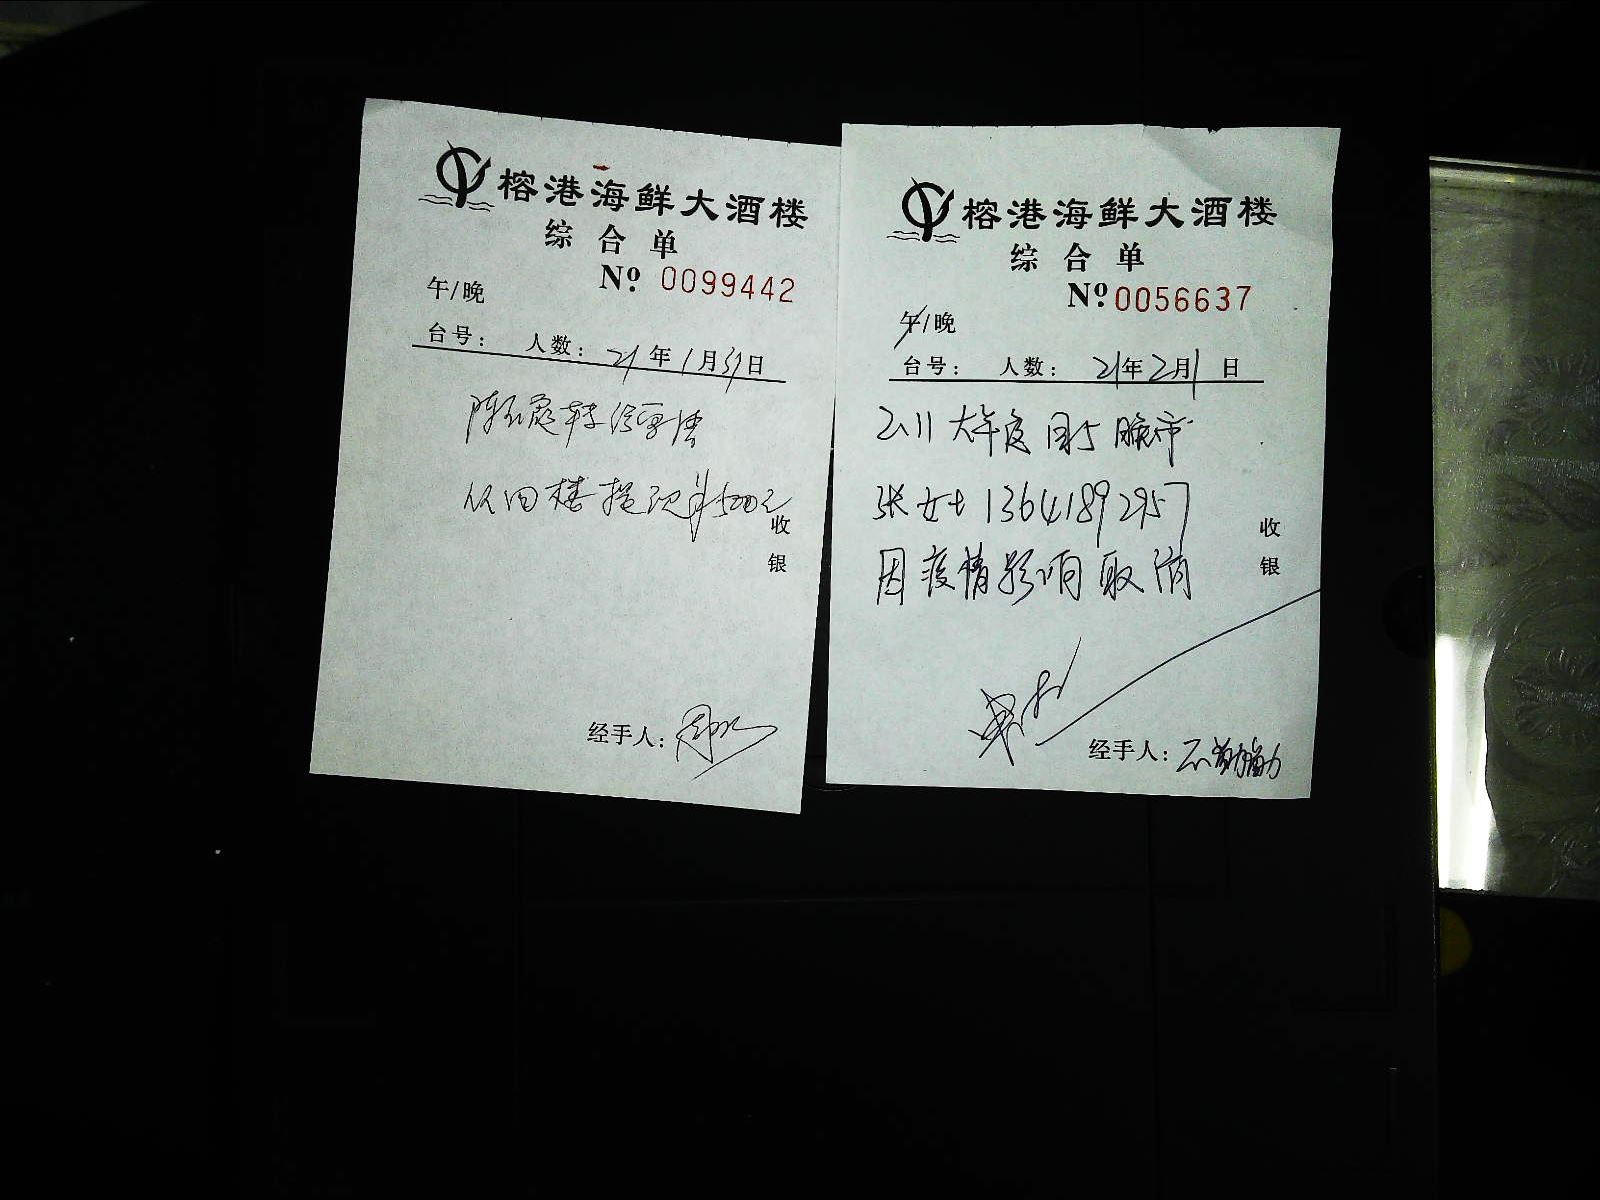 榕港海鲜大酒楼
综合单
№ 0099442
午/晚
台号: 人数: 21年1月31日
从四楼提现 500元
收银
经手人:
榕港海鲜大酒楼
综合单
№ 0056637
午/晚
台号: 人数: 21年2月1日
2.11 大年 晚市
张女士 13641892957
因疫情影响取消
收银
经手人: